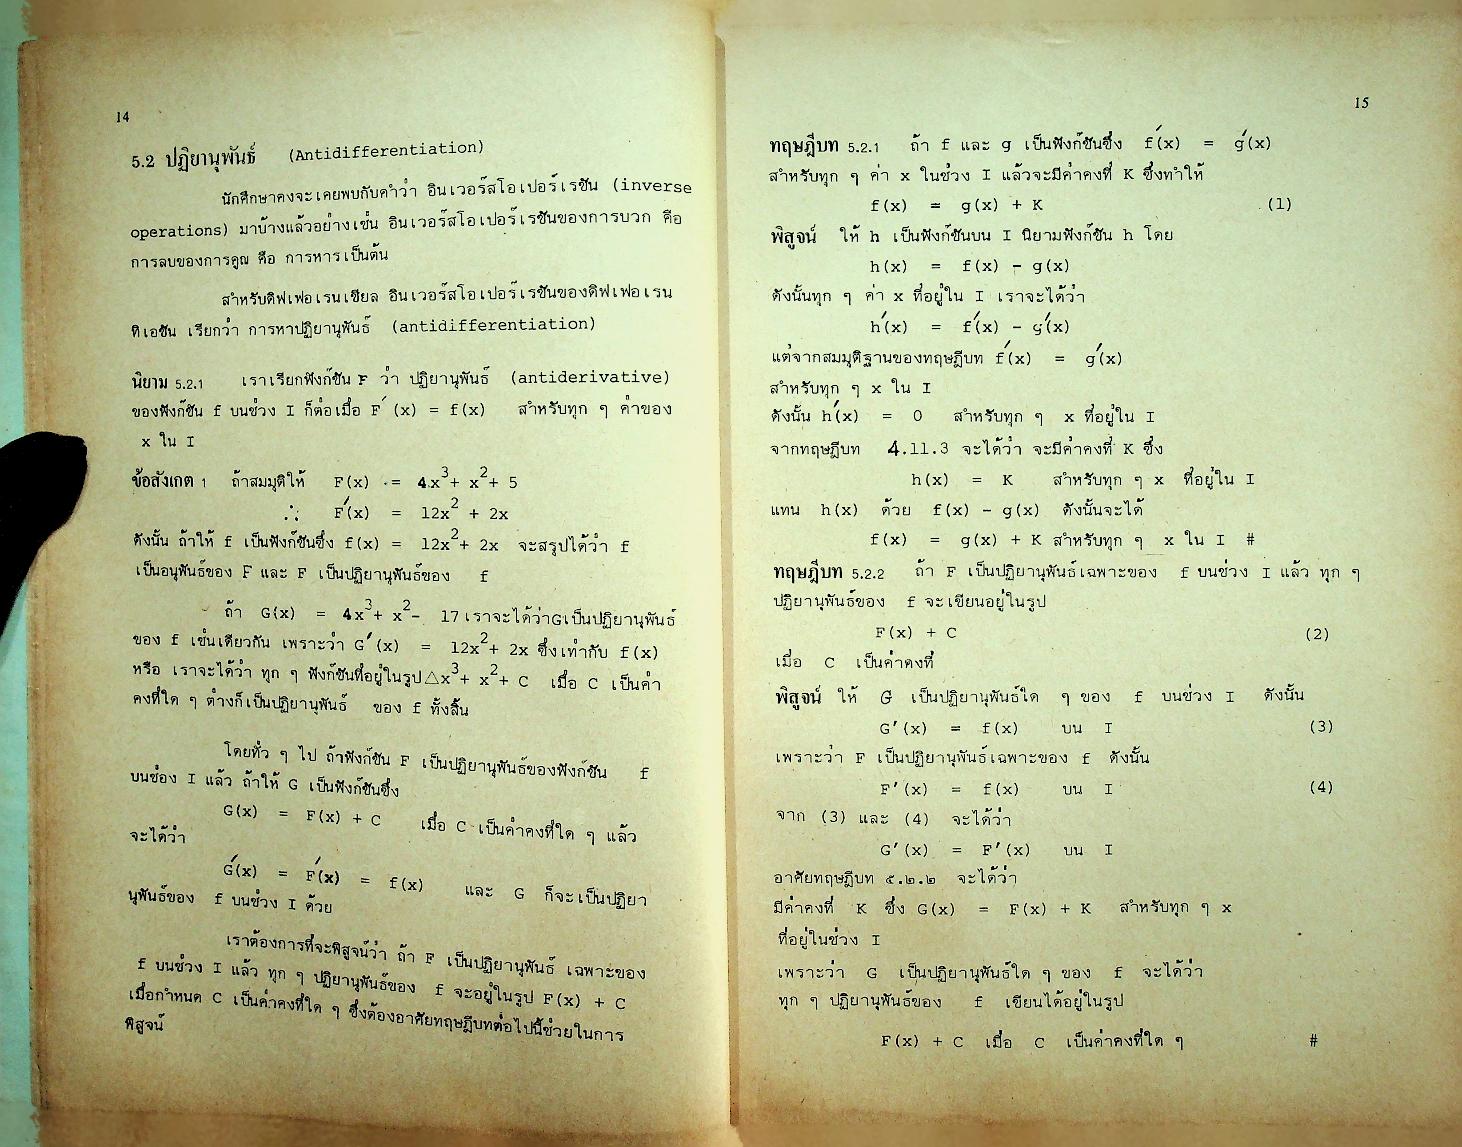 14
5.2 ปฏิยานุพันธ์ (Antidifferentiation)
นักศึกษาคงจะเคยพบกับคำว่า อินเวอร์สโอเปอร์เรชัน (inverse
operations) มาบ้างแล้วอย่างเช่น อินเวอร์สโอเปอร์เรชันของการบวก คือ
การลบของการคูณ คือ การหารเป็นต้น
สำหรับดิฟเฟอเรนเชียล อินเวอร์สโอเปอร์เรชันของดิฟเฟอเรน
ทิเอชัน เรียกว่า การหาปฏิยานุพันธ์ (antidifferentiation)
นิยาม 5.2.1 เราเรียกฟังก์ชัน F ว่า ปฏิยานุพันธ์ (antiderivative)
ของฟังก์ชัน f บนช่วง I ก็ต่อเมื่อ F′(x) = f(x) สำหรับทุก ๆ ค่าของ
x ใน I
ข้อสังเกต 1 ถ้าสมมุติให้ F(x) = 4x³+ x²+ 5
∴ F′(x) = 12x² + 2x
ดังนั้น ถ้าให้ f เป็นฟังก์ชันซึ่ง f(x) = 12x²+ 2x จะสรุปได้ว่า f
เป็นอนุพันธ์ของ F และ F เป็นปฏิยานุพันธ์ของ f
ถ้า G(x) = 4x³+ x²- 17 เราจะได้ว่าGเป็นปฏิยานุพันธ์
ของ f เช่นเดียวกัน เพราะว่า G′(x) = 12x²+ 2x ซึ่งเท่ากับ f(x)
หรือ เราจะได้ว่า ทุก ๆ ฟังก์ชันที่อยู่ในรูป△x³+ x²+ C เมื่อ C เป็นค่า
คงที่ใด ๆ ต่างก็เป็นปฏิยานุพันธ์ ของ f ทั้งสิ้น
โดยทั่ว ๆ ไป ถ้าฟังก์ชัน F เป็นปฏิยานุพันธ์ของฟังก์ชัน f
บนช่อง I แล้ว ถ้าให้ G เป็นฟังก์ชันซึ่ง
G(x) = F(x) + C เมื่อ C เป็นค่าคงที่ใด ๆ แล้ว
จะได้ว่า
G′(x) = F′(x) = f(x) และ G ก็จะเป็นปฏิยา
นุพันธ์ของ f บนช่วง I ด้วย
เราต้องการที่จะพิสูจน์ว่า ถ้า F เป็นปฏิยานุพันธ์ เฉพาะของ
f บนช่วง I แล้ว ทุก ๆ ปฏิยานุพันธ์ของ f จะอยู่ในรูป F(x) + C
เมื่อกำหนด C เป็นค่าคงที่ใด ๆ ซึ่งต้องอาศัยทฤษฎีบทต่อไปนี้ช่วยในการ
พิสูจน์
15
ทฤษฎีบท 5.2.1 ถ้า f และ g เป็นฟังก์ชันซึ่ง f′(x) = g′(x)
สำหรับทุก ๆ ค่า x ในช่วง I แล้วจะมีค่าคงที่ K ซึ่งทำให้
f(x) = g(x) + K (1)
พิสูจน์ ให้ h เป็นฟังก์ชันบน I นิยามฟังก์ชัน h โดย
h(x) = f(x) - g(x)
ดังนั้นทุก ๆ ค่า x ที่อยู่ใน I เราจะได้ว่า
h′(x) = f′(x) - g′(x)
แต่จากสมมุติฐานของทฤษฎีบท f′(x) = g′(x)
สำหรับทุก ๆ x ใน I
ดังนั้น h′(x) = 0 สำหรับทุก ๆ x ที่อยู่ใน I
จากทฤษฎีบท 4.11.3 จะได้ว่า จะมีค่าคงที่ K ซึ่ง
h(x) = K สำหรับทุก ๆ x ที่อยู่ใน I
แทน h(x) ด้วย f(x) - g(x) ดังนั้นจะได้
f(x) = g(x) + K สำหรับทุก ๆ x ใน I #
ทฤษฎีบท 5.2.2 ถ้า F เป็นปฏิยานุพันธ์เฉพาะของ f บนช่วง I แล้ว ทุก ๆ
ปฏิยานุพันธ์ของ f จะเขียนอยู่ในรูป
F(x) + C (2)
เมื่อ C เป็นค่าคงที่
พิสูจน์ ให้ G เป็นปฏิยานุพันธ์ใด ๆ ของ f บนช่วง I ดังนั้น
G′(x) = f(x) บน I (3)
เพราะว่า F เป็นปฏิยานุพันธ์เฉพาะของ f ดังนั้น
F′(x) = f(x) บน I (4)
จาก (3) และ (4) จะได้ว่า
G′(x) = F′(x) บน I
อาศัยทฤษฎีบท ๕.๒.๒ จะได้ว่า
มีค่าคงที่ K ซึ่ง G(x) = F(x) + K สำหรับทุก ๆ x
ที่อยู่ในช่วง I
เพราะว่า G เป็นปฏิยานุพันธ์ใด ๆ ของ f จะได้ว่า
ทุก ๆ ปฏิยานุพันธ์ของ f เขียนได้อยู่ในรูป
F(x) + C เมื่อ C เป็นค่าคงที่ใด ๆ #